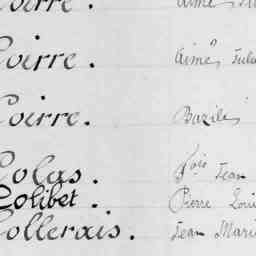 Poirre. Aimé
Poirre. Aimé Jules
Poirre. Bazile
Colas. Fois Jean
Colibet. Pierre Louis
Collerais. Jean Marie